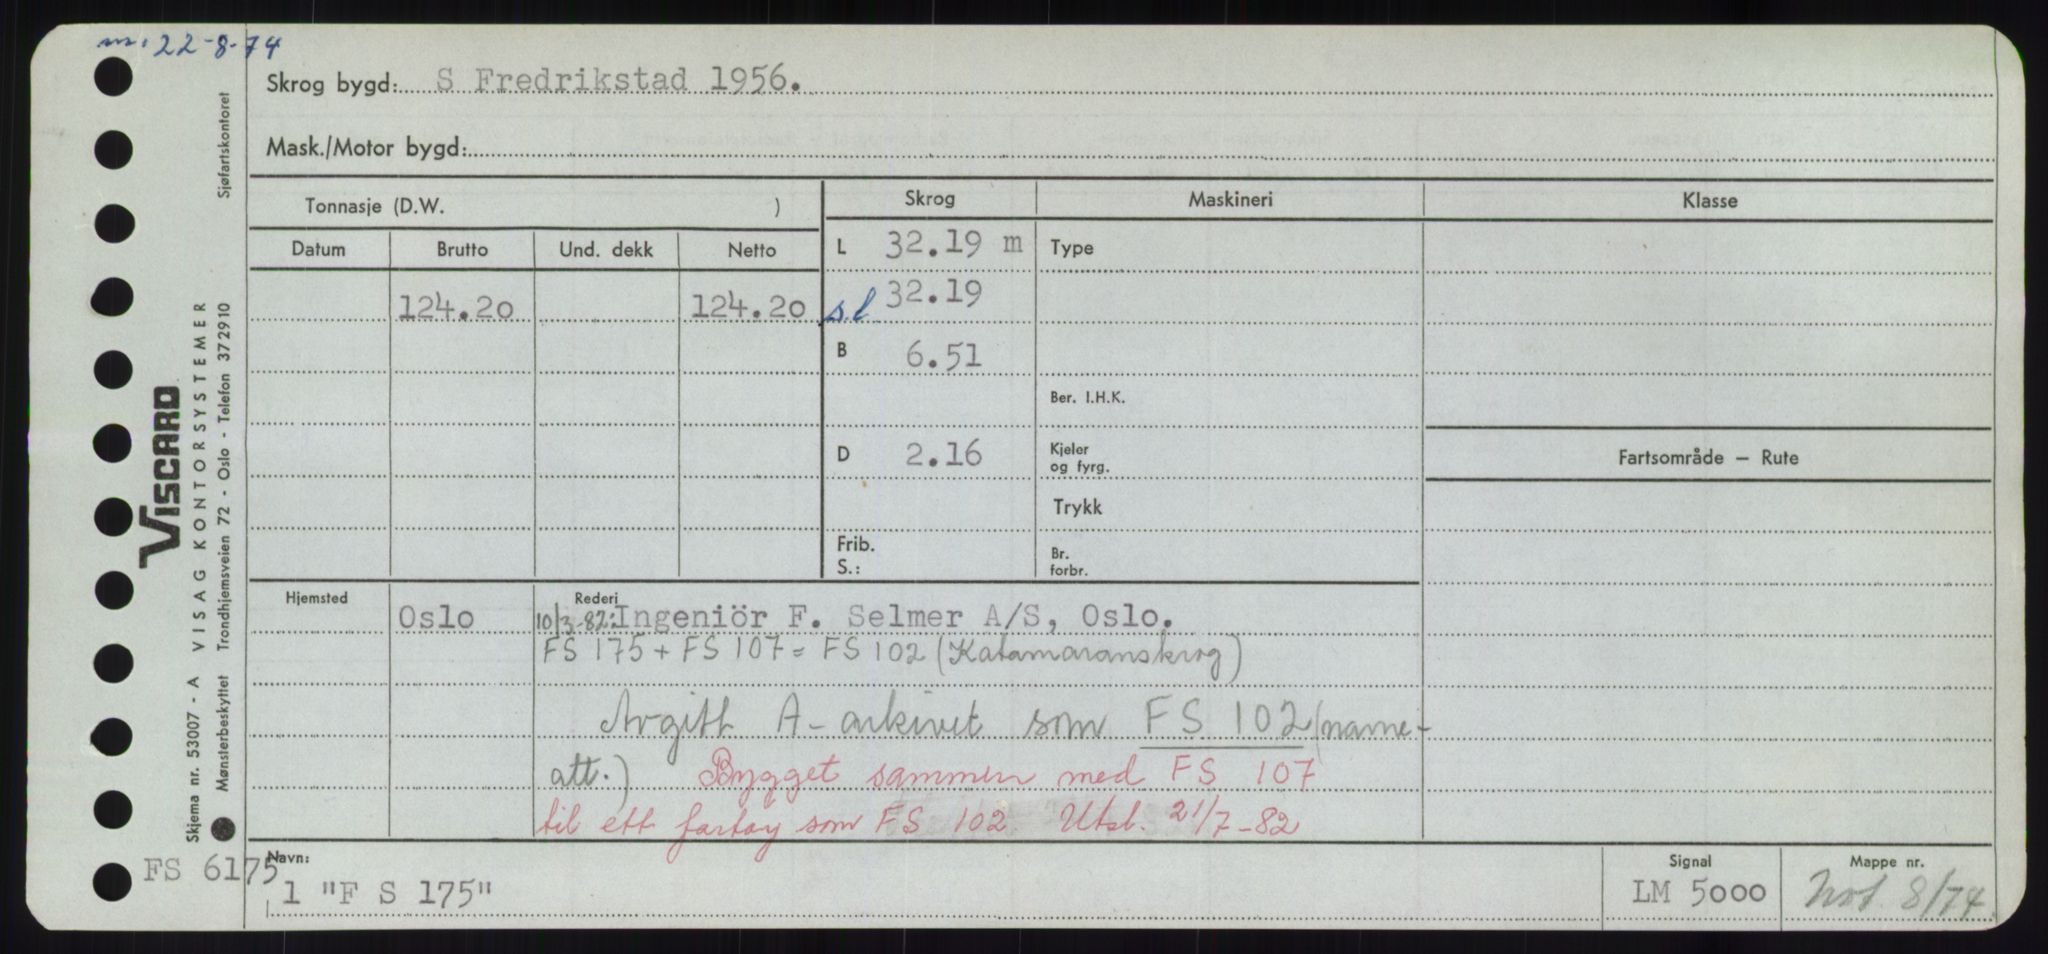 m. 22-8-74
Skrog bygd: S Fredrikstad 1956.
Mask./Motor bygd:
Tonnasje (D.W. )
Skrog
Maskineri
Klasse
Datum Brutto Und. dekk Netto
L 32.19 m
Type
124.20 124.20
s.l 32.19
B 6.51
Ber. I.H.K.
D 2.16
Kjeler
og fyrg.
Fartsområde — Rute
Trykk
Frib.
S.:
Br.
forbr.
Hjemsted
Oslo
Rederi
10/3-82: Ingeniör F. Selmer A/S, Oslo.
FS 175 + FS 107 = FS 102 (Katamaranskrog)
Avgitt A-arkivet som FS 102 (navne-
att.) Bygget sammen med FS 107
til ett fartøy som FS 102 Utsl. 21/7-82
FS 6175
Navn:
1 "F S 175"
Signal
LM 5000
Mappe nr.
Not 8/74.
Sjøfartskontoret
VISCARD
VISAG KONTORSYSTEMER
Trondhjemsveien 72 - Oslo - Telefon 372910
Skjema nr. 53007 - A
Mønsterbeskyttet